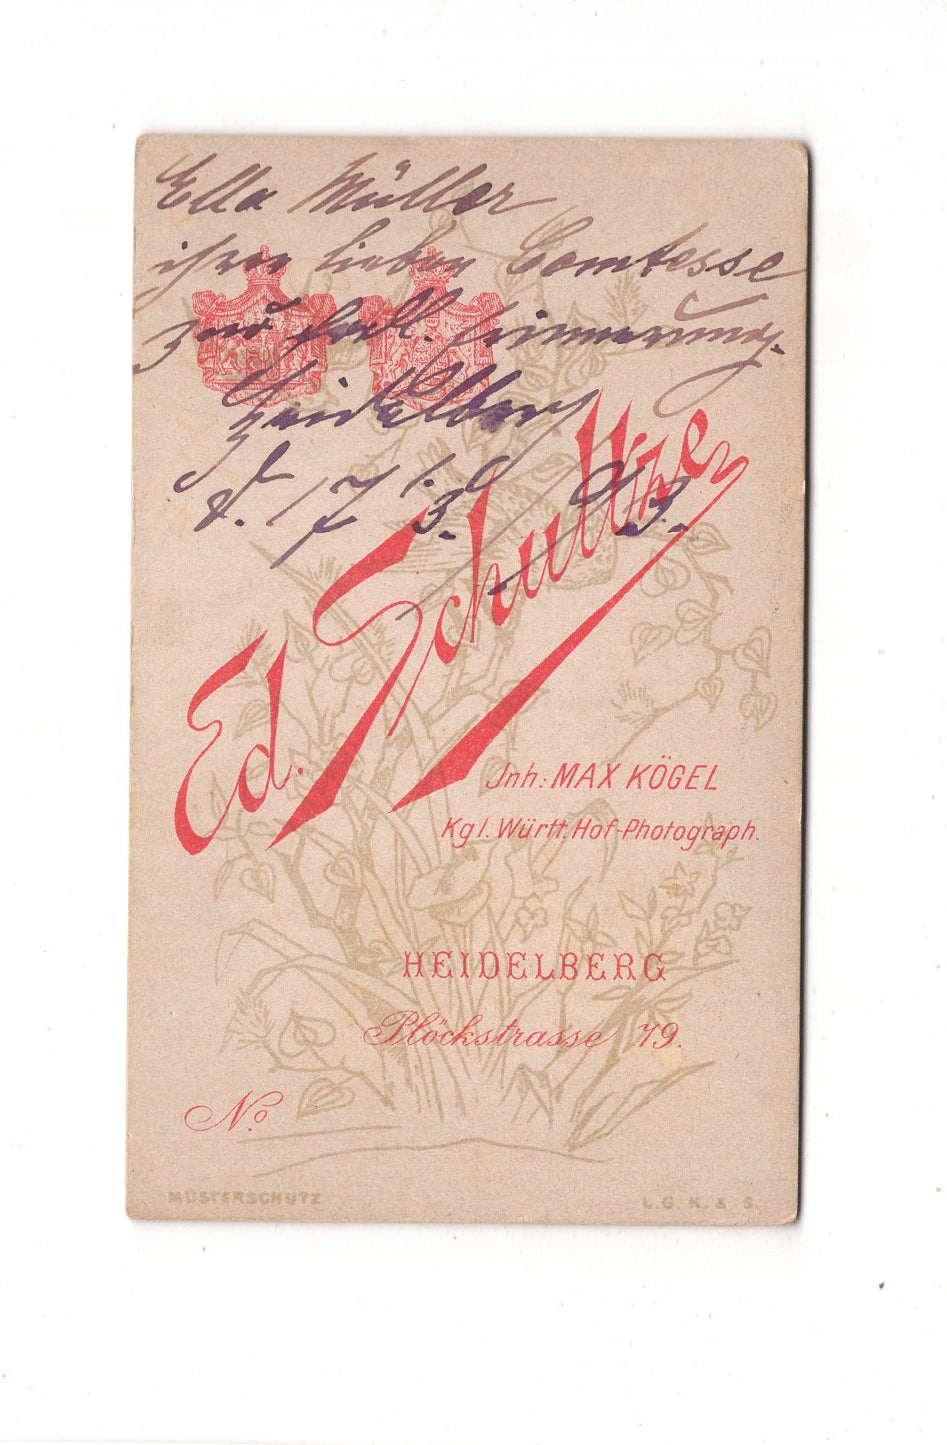 Ella Müller
ihrer lieben Comtesse
zur frdl. Erinnerung.
Heidelberg
d. 17. 3. 93.
Ed. Schultze
Jnh: MAX KÖGEL
Kgl. Württ. Hof-Photograph.
HEIDELBERG
Plöckstrasse 79.
No.
MUSTERSCHUTZ
L. G. K. & S.